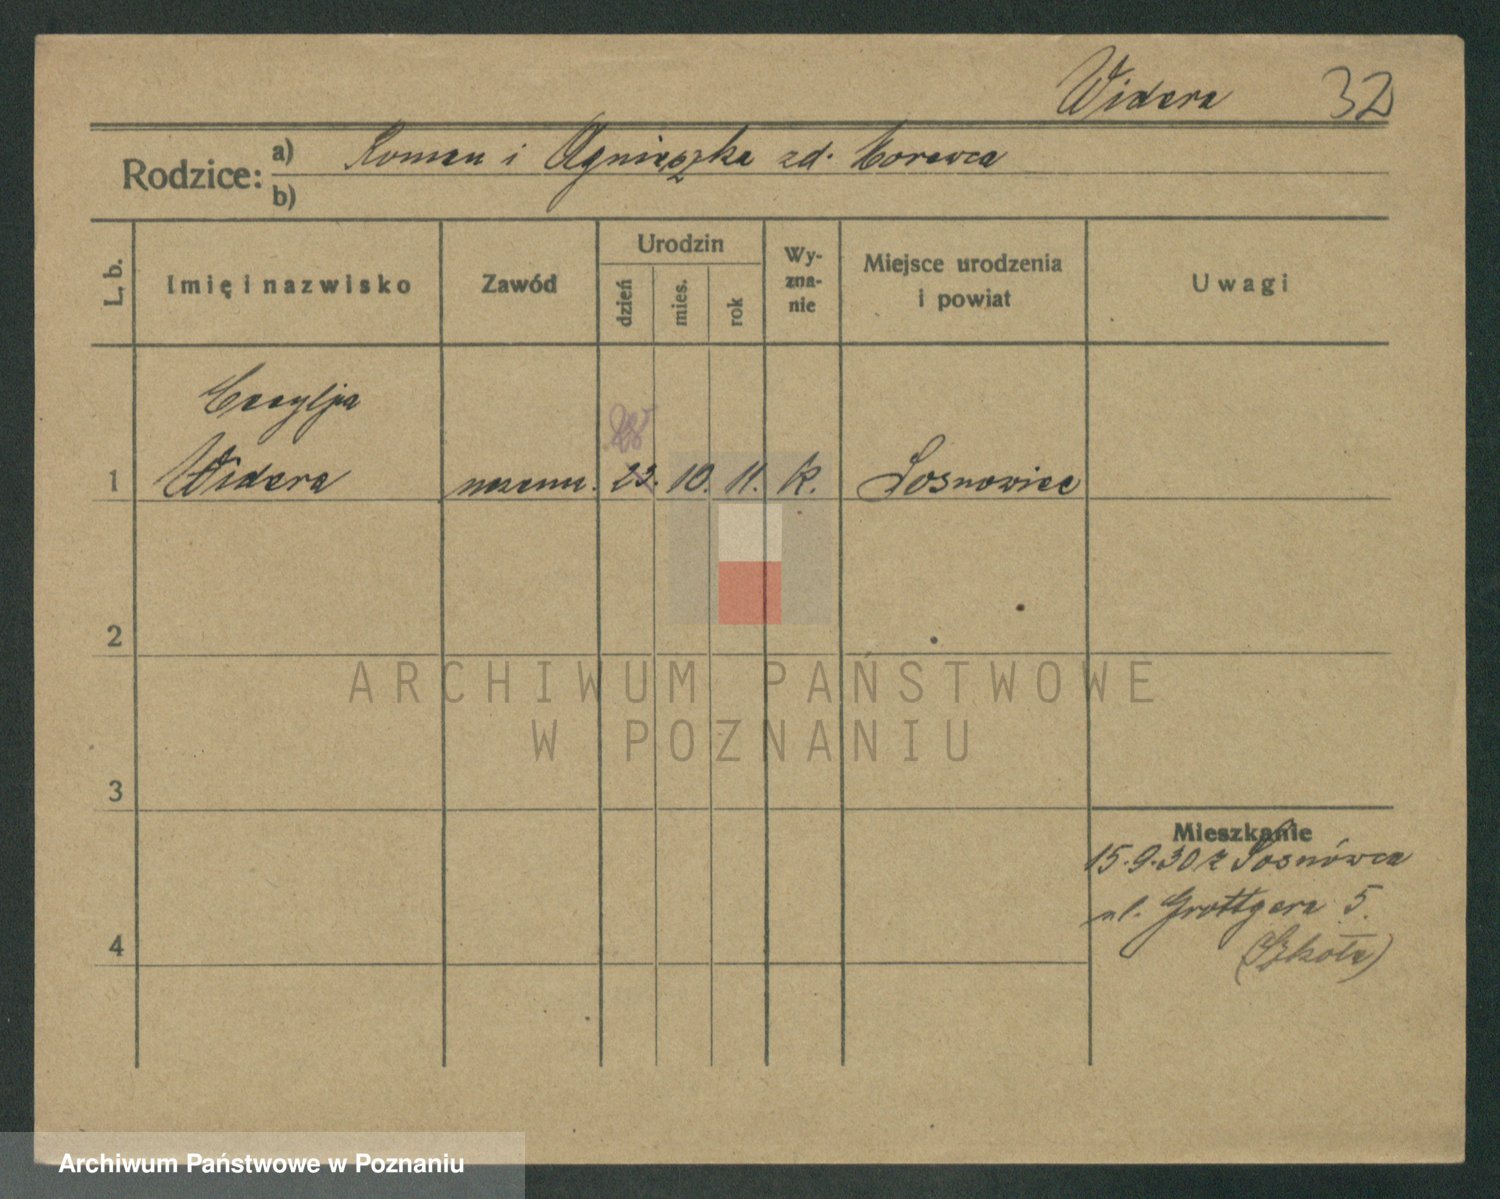 Widera 32
Rodzice: a) Roman i Agnieszka zd.
b)
L. b.
Imię i nazwisko
Zawód
Urodzin
dzień
mies.
rok
Wy-
zna-
nie
Miejsce urodzenia
i powiat
Uwagi
Cecylja
1 Widera 23. 10. 11. k. Sosnowiec
2
3
4
Mieszkanie
15.9.30 z Sosnówca
ul. Grottgera 5.
(Szkoła)
ARCHIWUM PAŃSTWOWE
W POZNANIU
Archiwum Państwowe w Poznaniu